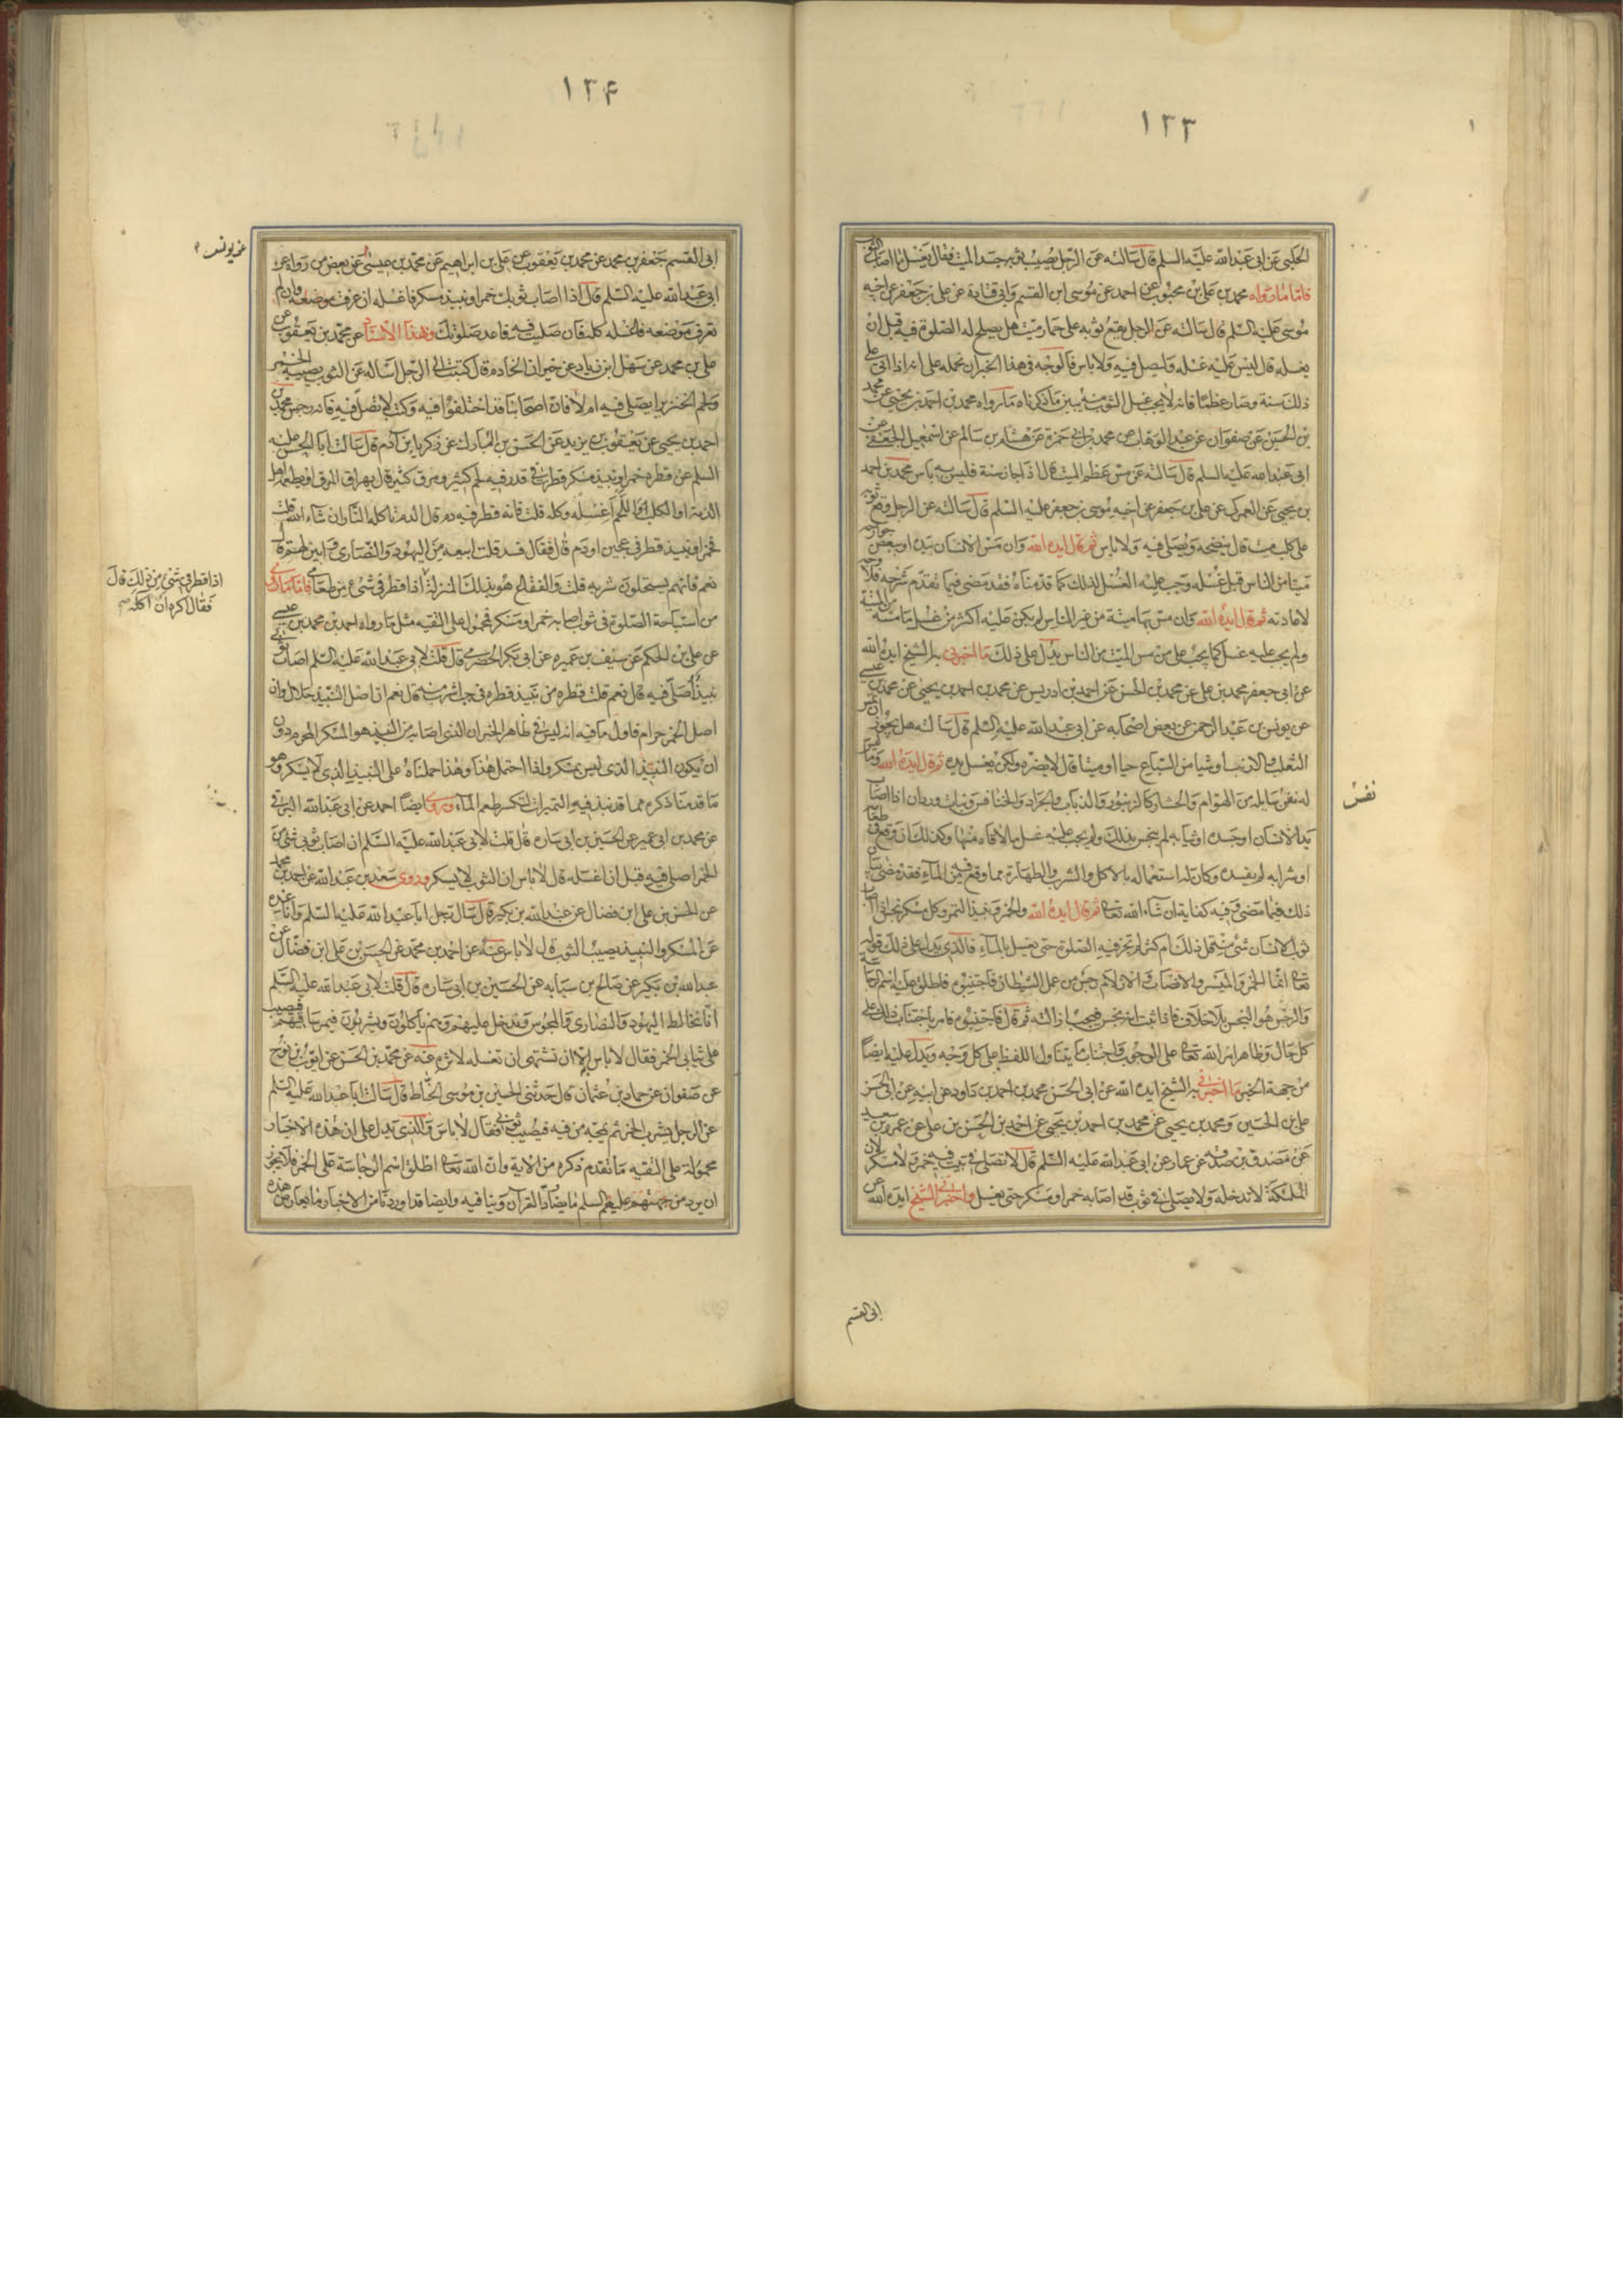 ١٣٣
الحلبي عن ابي عبدالله عليه السلم قال سالته عن الرجل يصيب ثوبه جسد الميت فقال يغسل ما اصاب الثوب
فاما ما رواه محمد بن علي بن محبوب عن احمد عن موسى ابن القسم وابي قتادة عن علي بن جعفر عن اخيه
موسى عليه السلم قال سالته عن الرجل يقع ثوبه على حمار ميت هل يصلح له الصلوة فيه قبل ان
يغسله قال ليس عليه غسله وليصل فيه ولا باس فالوجه في هذا الخبر ان نحمله على انه اذا اتى على
ذلك سنة وصار عظما فانه لا يجب غسل الثوب منه يبين ما ذكرناه ما رواه محمد بن احمد بن يحيى عن محمد
بن الحسين عن صفوان عن عبد الوهاب عن محمد بن ابي حمزة عن هشام بن سالم عن اسمعيل الجعفي عن
ابي عبدالله عليه السلم قال سالته عن مس عظم الميت قال اذا جاز سنة فليس به باس محمد بن احمد
بن يحيى عن العمركي عن علي بن جعفر عن اخيه موسى بن جعفر عليه السلم قال سالته عن الرجل وقع ثوبه
على كلب ميت قال ينضحه ويصلي فيه ولا باس ثم قال ايده الله وان مس الانسان بيده او ببعض جوارحه
ميتا من الناس قبل غسله وجب عليه الغسل لذلك كما قدمناه فقد مضى فيما تقدم شرحه فلا وجه
لاعادته ثم قال ايده الله وان مس بهامية من غير الناس لم يكن عليه اكثر من غسل ما مسه من الميتة
ولم يجب عليه غسل كما يجب على من مس الميت من الناس يدل على ذلك ما اخبرني به الشيخ ايده الله
عن ابي جعفر محمد بن علي عن محمد بن الحسن عن احمد بن ادريس عن محمد بن احمد بن يحيى عن محمد بن عيسى
عن يونس بن عبد الرحمن عن بعض اصحابه عن ابي عبدالله عليه السلم قال سالته هل يجوز ان يمس
الثعلب والارنب او شيا من السباع حيا او ميتا قال لا يضره ولكن يغسل يده ثم قال ايده الله وما ليس
له نفس سايلة من الهوام والحشار كالزنبور والذباب والجراد والخنافس وبنات وردان اذا اصاب
يد الانسان او جسده او ثيابه لم ينجس بذلك ولم يجب عليه غسل ما لاقاه منها وكذلك ان وقع في طعامه
او شرابه لم يفسده وكان له استعماله بالاكل والشرب والطهارة مما وقع فيه من الماء فقد مضى بيان
ذلك فيما مضى وفيه كفاية ان شاء الله تعالى ثم قال ايده الله والخمر ونبيذ التمر وكل مسكر نجس اذا اصاب
ثوب الانسان شئ منه قل ذلك ام كثر لم تجز فيه الصلوة حتى يغسل بالماء فالذي يدل على ذلك قوله
تعالى انما الخمر والميسر والانصاب والازلام رجس من عمل الشيطان فاجتنبوه فاطلق عليه اسم الرجاسة
والرجس هو النجس بلا خلاف فاذا ثبت انه نجس فيجب ازالته ثم قال فاجتنبوه فامر باجتناب ذلك على
كل حال وظاهر امر الله تعالى على الوجوب واجتناب ما يتناول اللفظ على كل وجه ويدل عليه ايضا
من جهة الخبر ما اخبرني به الشيخ ايده الله عن ابي الحسن محمد بن احمد بن داود عن ابيه عن ابي الحسن
علي بن الحسين ومحمد بن يحيى عن محمد بن احمد بن يحيى عن احمد بن الحسن بن علي عن عمرو بن سعيد
عن مصدق بن صدقه عن عمار عن ابي عبدالله عليه السلم قال لا تصل في بيت فيه خمر ولا مسكر لان
الملئكة لا تدخله ولا يصلى في ثوب قد اصابه خمر او مسكر حتى يغسل واخبرني الشيخ ايده الله عن
نفس
ابي القسم
١٣۴
ابي القسم جعفر بن محمد عن محمد بن يعقوب عن علي بن ابراهيم عن محمد بن عيسى عن بعض من رواه عن
ابي عبدالله عليه السلم قال اذا اصاب ثوبك خمر او نبيذ مسكر فاغسله ان عرفت موضعه وان لم
تعرف موضعه فاغسله كله فان صليت فيه فاعد صلوتك وبهذا الاسناد عن محمد بن يعقوب عن
علي بن محمد عن سهل ابن زياد عن خيران الخادم قال كتبت الى الرجل اساله عن الثوب يصيبه الخمر
ولحم الخنزير ايصلى فيه ام لا فان اصحابنا قد اختلفوا فيه وكتب لا تصل فيه فانه رجس محمد بن
احمد بن يحيى عن يعقوب بن يزيد عن الحسن بن المبارك عن زكريا بن آدم قال سالت ابا الحسن عليه
السلم عن قطرة خمر او نبيذ مسكر قطرت في قدر فيه لحم كثير ومرق كثير قال يهراق المرق او يطعمه اهل
الذمة او الكلب او اللحم اغسله وكله قلت فانه قطر فيه دم قال الدم تاكله النار ان شاء الله قلت
فخمر او نبيذ قطر في عجين او دم قال فقال فسد قلت ابيعه من اليهود والنصارى وابين لهم قال
نعم فانهم يستحلون شربه قلت والفقاع هو بتلك المنزلة اذا قطر في شئ من طعامي فاما ما روي
من استباحة الصلوة في ثوب اصابه خمر او مسكر فمحمول على التقيه مثل ما رواه احمد بن محمد بن عيسى
عن علي بن الحكم عن سيف بن عميره عن ابي بكر الحضرمي قال قلت لابي عبدالله عليه السلم اصاب ثوبي
نبيذ اصلي فيه قال نعم قلت قطرة من نبيذ قطرة في حب اشرب منه قال نعم ان اصل النبيذ حلال وان
اصل الخمر حرام فاول ما فيه انه ليس في ظاهر الخبر ان الذي اصابه من النبيذ هو المسكر المحرم دون
ان يكون النبيذ الذي ليس بمسكر واذا احتمل هذا وهذا حملناه على النبيذ الذي لا يسكر وهو
ما قدمنا ذكره مما قد نبذ فيه التميرات لتكسر طعم الماء وروى ايضا احمد عن ابي عبدالله البرقي
عن محمد بن ابي عمير عن الحسين بن ابي ساره قال قلت لابي عبدالله عليه السلم ان اصاب ثوبي شئ من
الخمر اصلي فيه قبل ان اغسله قال لا باس ان الثوب لا يسكر وروى سعد بن عبدالله عن احمد بن محمد
عن الحسن بن علي ابن فضال عن عبدالله بن بكير قال سال رجل ابا عبدالله عليه السلم وانا عنده
عن المسكر والنبيذ يصيب الثوب قال لا باس عنه عن احمد بن محمد عن الحسن بن علي ابن فضال عن
عبدالله بن بكير عن صالح بن سيابه عن الحسين بن ابي ساره قال قلت لابي عبدالله عليه السلم
انا نخالط اليهود والنصارى والمجوس وندخل عليهم وهم ياكلون ويشربون فيمر ساقيهم فيصب
على ثيابي الخمر فقال لا باس الا ان تشتهي ان تغسله لاثره عنه عن محمد بن الحسن عن ايوب بن نوح
عن صفوان عن حماد بن عثمان قال حدثني الحسين بن موسى الحناط قال سالت ابا عبدالله عليه السلم
عن الرجل يشرب الخمر ثم يمجه من فيه فيصيب ثوبي فقال لا باس والذي يدل على ان هذه الاخبار
محمولة على التقيه ما تقدم ذكره من الاية وان الله تعالى اطلق اسم الرجاسة على الخمر فلا يجوز
ان يرد من جهتهم عليهم السلم ما يضاد القرآن وينافيه وايضا قد اوردنا من الاخبار ما يعارض هذه
عن يونس
اذا قطر في شئ من ذلك قال
فقال اكره ان آكله